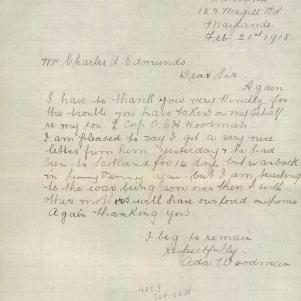 153 Magill Rd
Maylands
Feb 21st 1918.
Mr Charles A. Edmunds
Dear Sir
Again
I have to thank you very kindly for
the trouble you have taken on my behalf
re my son. L Corp. O. E. H Woodman.
I am pleased to say I got a very nice
letter from him yesterday & he had
ben to Scotland for 14 days but was back
in again. but I am trusting
to the war being soon over then I with
other mothers will have our loved ones home
Again thanking you.
I beg to remain
respectfully.
Ada Woodman